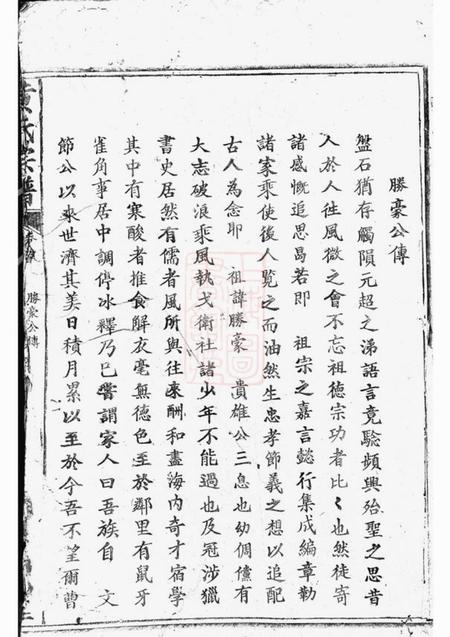 勝豪公傳
盤石猶存觸隕元超之涕語言竟驗頻興殆聖之思昔
人於人徃風微之會不忘祖德宗功者比〻也然徒寄
諸感慨追思曷若即 祖宗之嘉言懿行集成編章勒
諸家乘使後人覧之而油然生忠孝節義之想以追配
古人為念耶 祖諱勝豪 貴雄公三息也幼倜儻有
大志破浪乘風執戈衛社諸少年不能過也及冠涉獵
書史居然有儒者風所與往來酬和盡海内奇才宿學
其中有寒酸者推食解衣毫無德色至於鄰里有鼠牙
雀角事居中調停冰釋乃已嘗謂家人曰吾族自 文
節公以來世濟其美日積月累以至於今吾不望爾曹
黄氏宗譜
勝豪公傳